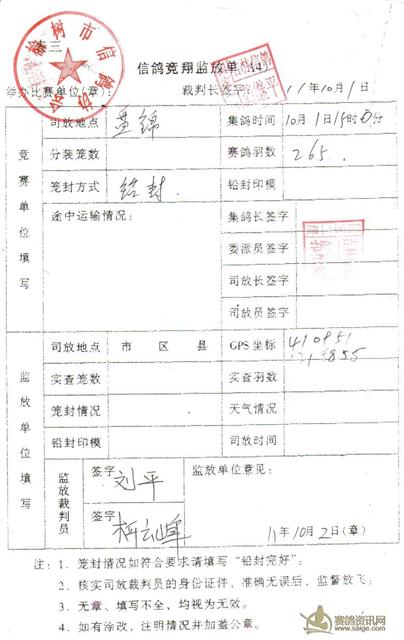 表三
榆树市信鸽协会
信鸽竞翔监放单（4）
举办比赛单位(章): 裁判长签字: 11年10月1日
竞赛单位填写
司放地点 盘锦 集鸽时间 10月1日15时0分
分装笼数 赛鸽羽数 265.
笼封方式 铅封. 铅封印模
途中运输情况: 集鸽长签字
委派员签字
司放长签字
司放员签字
监放单位填写
司放地点 市 区 县 GPS坐标 410951
1214855
实查笼数 实查羽数
笼封情况 天气情况
铅封印模 司放时间
监放裁判员 签字 刘平 监放单位意见:
签字
11年10月2日(章)
注: 1. 笼封情况如符合要求请填写“铅封完好”。
2. 核实司放裁判员的身份证件、准确无误后，监督放飞。
3. 无章、填写不全，均视为无效。
4. 如有涂改，注明情况并加盖公章。
赛鸽资讯网
www.saige.com